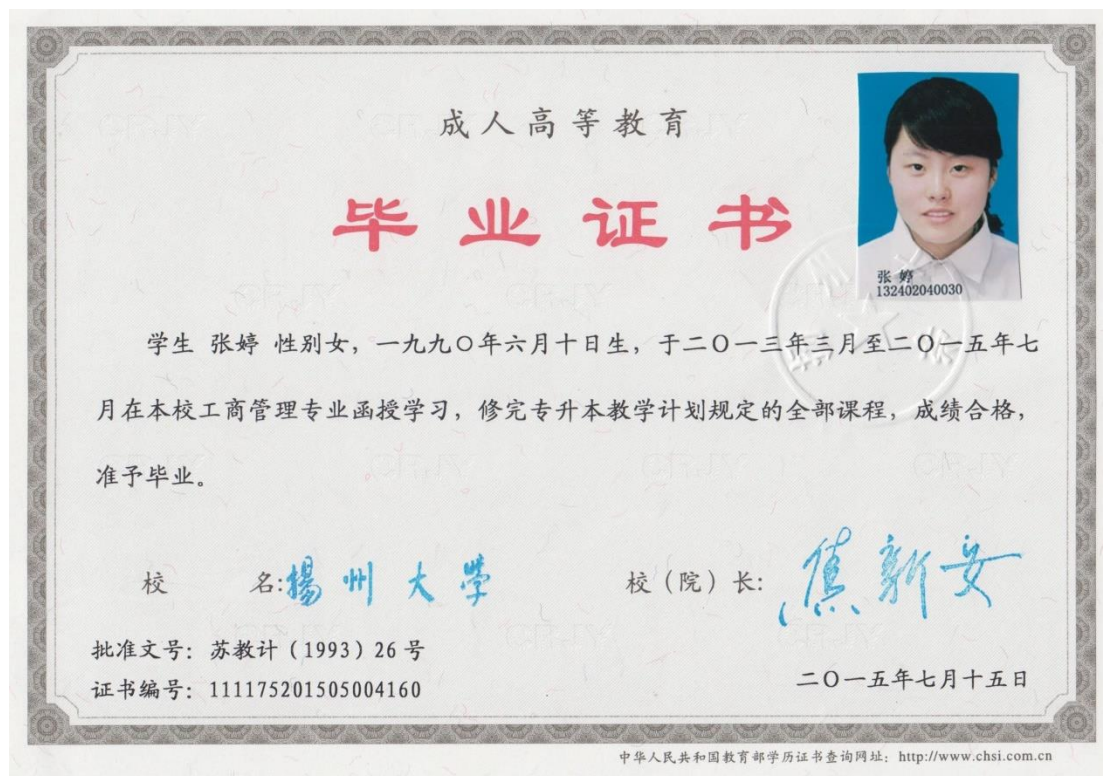 成人高等教育
毕业证书
张婷
132402040030
学生 张婷 性别女，一九九〇年六月十日生，于二〇一三年三月至二〇一五年七
月在本校工商管理专业函授学习，修完专升本教学计划规定的全部课程，成绩合格，
准予毕业。
校 名:揚州大学 校（院）长: 焦新安
批准文号：苏教计（1993）26号
证书编号：111175201505004160
二〇一五年七月十五日
中华人民共和国教育部学历证书查询网址：http://www.chsi.com.cn